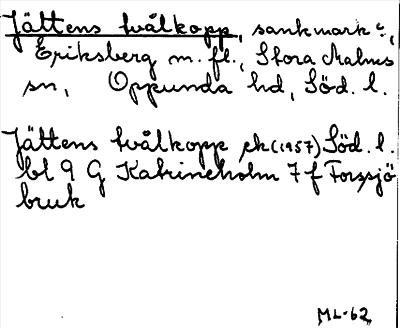 Jättens tvålkopp, sankmark,
Eriksberg m. fl., Stora Malms
sn, Oppunda hd, Söd. l.
Jättens tvålkopp ek (1957) Söd. l.
bl 9 G Katrineholm 7 f Forssjö
bruk
ML-62